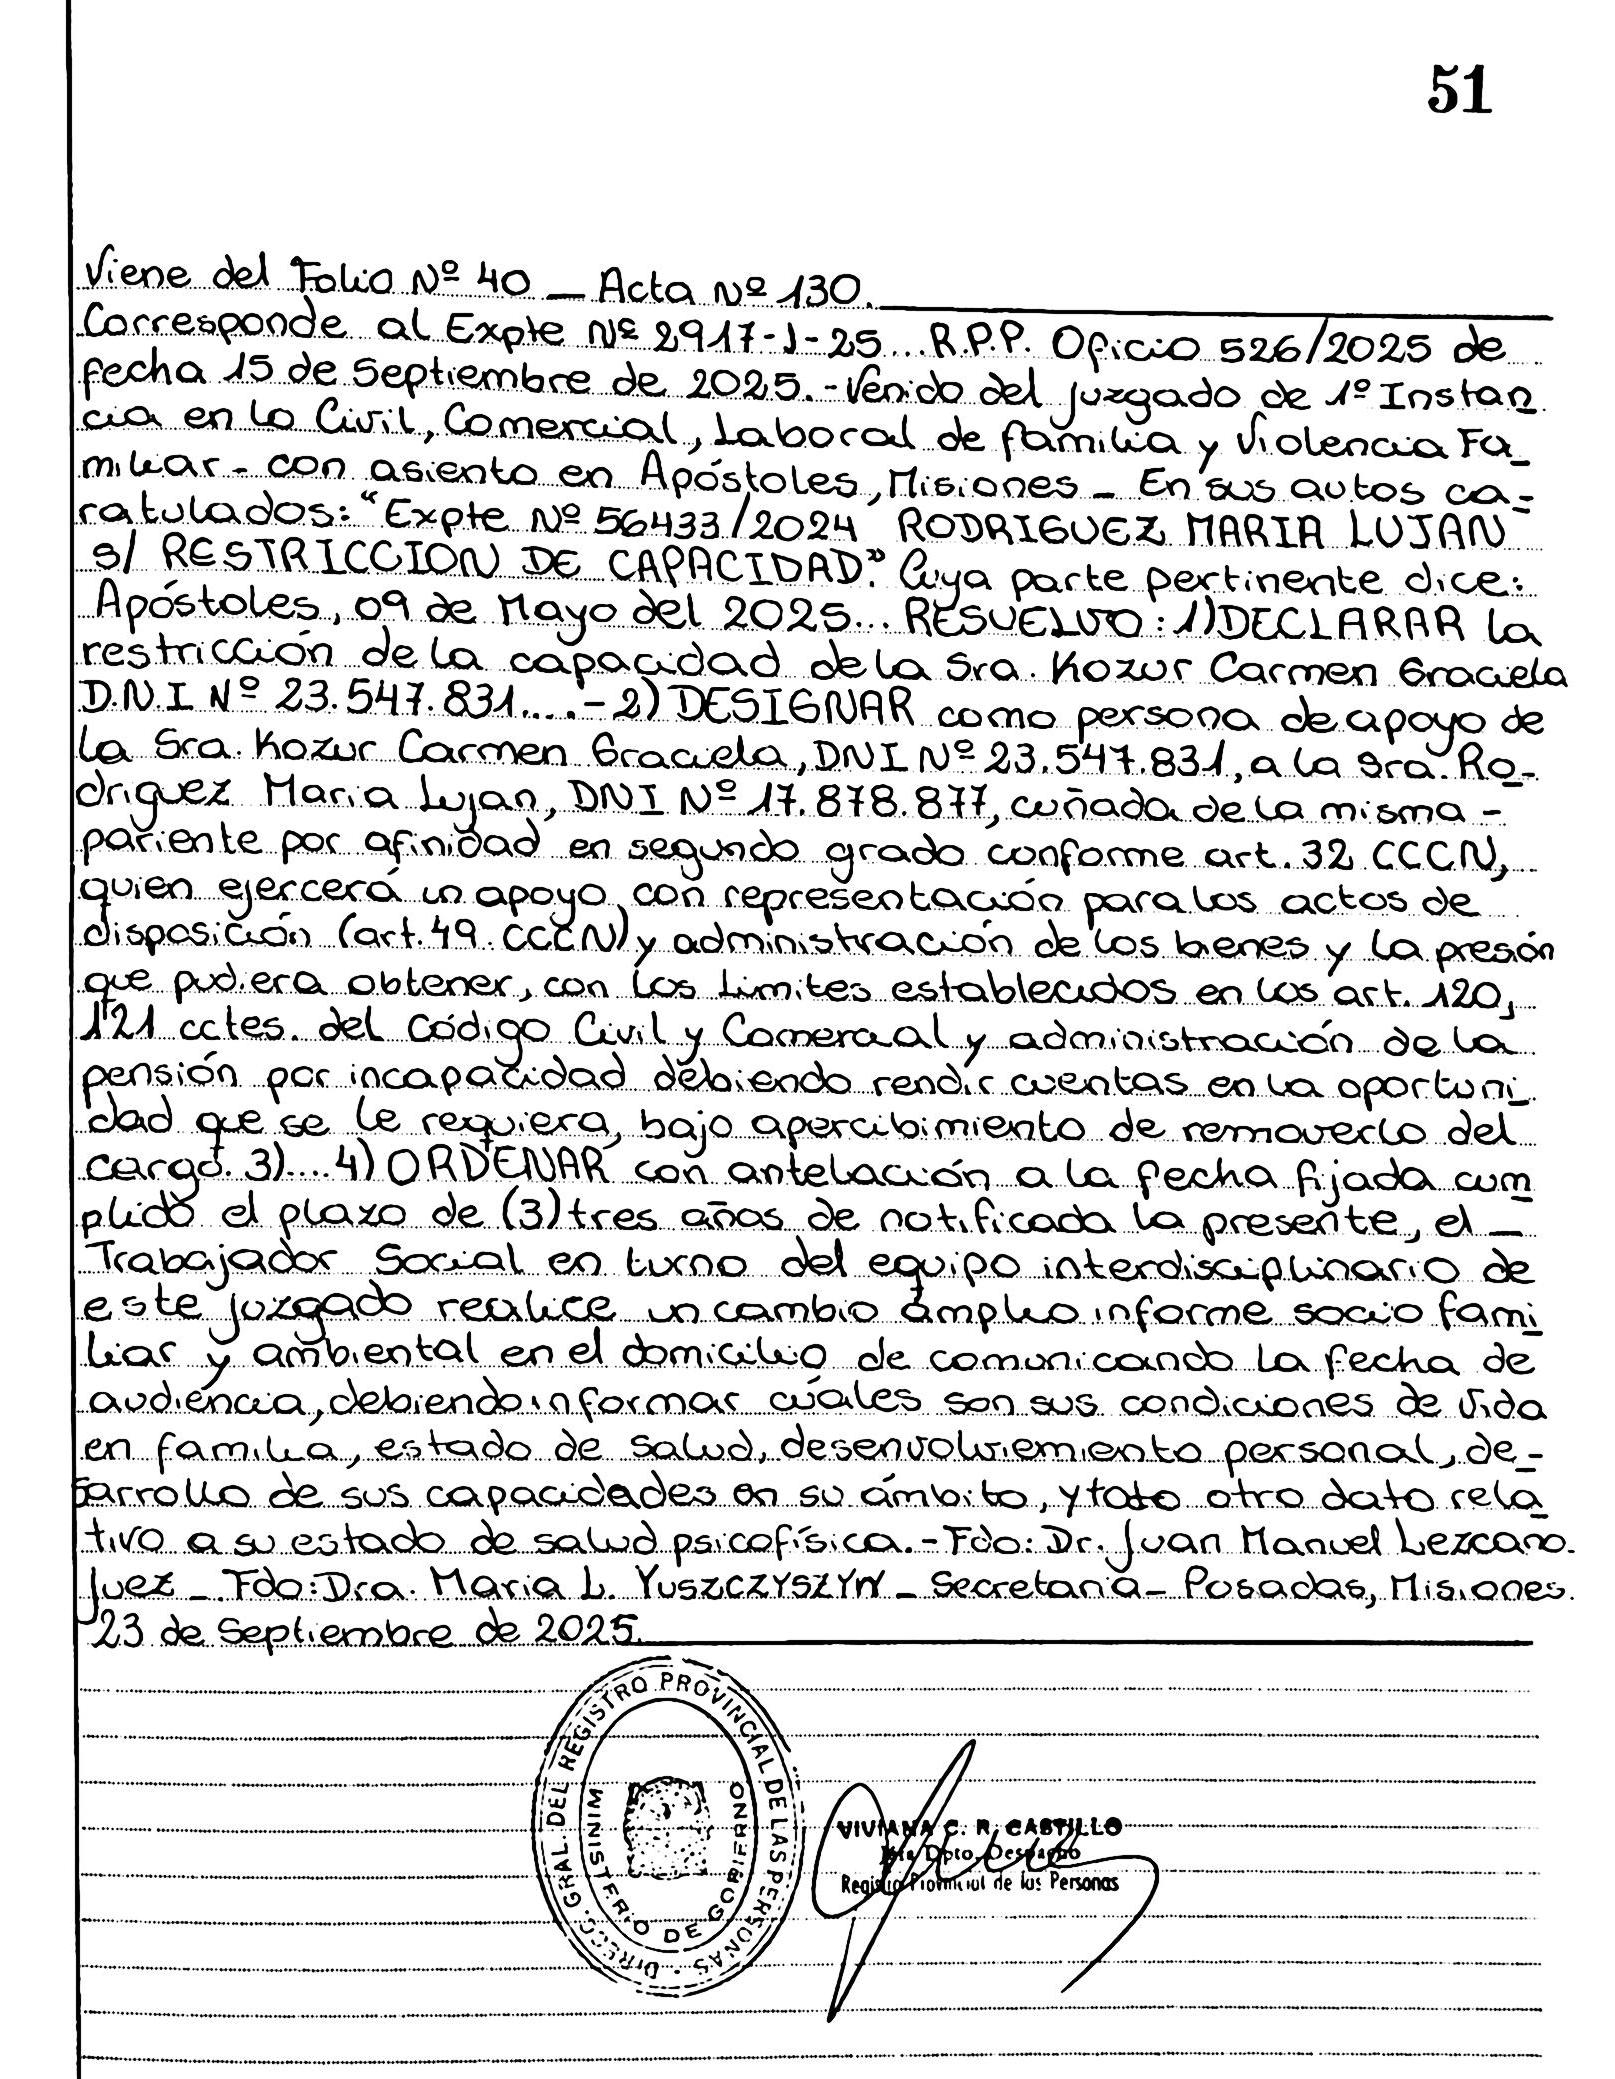 51
Viene del Folio Nº 40 _ Acta Nº 130.
Corresponde al Expte Nº 2917-J-25...R.P.P. Oficio 526/2025 de
fecha 15 de Septiembre de 2025.-Venido del Juzgado de 1º Instan
cia en lo Civil, Comercial, Laboral de familia y Violencia Fa_
miliar - con asiento en Apóstoles, Misiones _ En sus autos ca-
ratulados: "Expte Nº 56433/2024 RODRIGUEZ MARIA LUJAN
s/ RESTRICCION DE CAPACIDAD". Cuya parte pertinente dice:
Apóstoles, 09 de Mayo del 2025... RESUELVO: 1) DECLARAR la
restricción de la capacidad de la Sra. Kozur Carmen Graciela
D.N.I Nº 23.547.831....-2) DESIGNAR como persona de apoyo de
la Sra. Kozur Carmen Graciela, DNI Nº 23.547.831, a la Sra. Ro-
driguez Maria Lujan, DNI Nº 17.878.877, cuñada de la misma -
pariente por afinidad en segundo grado conforme art. 32 CCCN,
quien ejercerá un apoyo con representación para los actos de
disposición (art. 49. CCCN) y administración de los bienes y la presión
que pudiera obtener, con los límites establecidos en los art. 120,
121 cctes. del Código Civil y Comercial y administración de la
pensión por incapacidad debiendo rendir cuentas en la oportuni
dad que se le requiera, bajo apercibimiento de removerlo del
cargo. 3)....4) ORDENAR con antelación a la fecha fijada cum
plido el plazo de (3) tres años de notificada la presente, el _
Trabajador Social en turno del equipo interdisciplinario de
este juzgado realice un cambio ámplio informe socio fami
liar y ambiental en el domicilio de comunicando la fecha de
audiencia, debiendo informar cuáles son sus condiciones de vida
en familia, estado de salud, desenvolviemiento personal, de_-
sarrollo de sus capacidades en su ámbito, y todo otro dato rela
tivo a su estado de salud psicofísica.-Fdo: Dr. Juan Manuel Lezcano.
Juez _ Fdo: Dra. Maria L. YUSZCZYSZYN _ Secretaria _ Posadas, Misiones.
23 de Septiembre de 2025.
DIRECC. GRAL. DEL REGISTRO PROVINCIAL DE LAS PERSONAS
MINISTERIO DE GOBIERNO
VIVIANA C. R. CASTILLO
Dpto. Despacho
Registro Provincial de las Personas